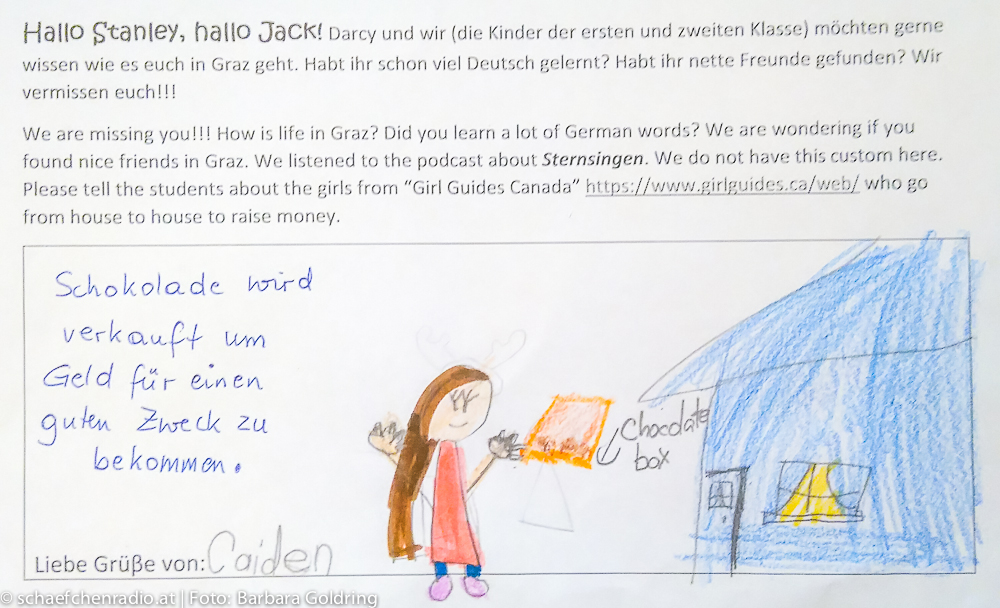 Hallo Stanley, hallo Jack! Darcy und wir (die Kinder der ersten und zweiten Klasse) möchten gerne
wissen wie es euch in Graz geht. Habt ihr schon viel Deutsch gelernt? Habt ihr nette Freunde gefunden? Wir
vermissen euch!!!
We are missing you!!! How is life in Graz? Did you learn a lot of German words? We are wondering if you
found nice friends in Graz. We listened to the podcast about Sternsingen. We do not have this custom here.
Please tell the students about the girls from “Girl Guides Canada” https://www.girlguides.ca/web/ who go
from house to house to raise money.
Schokolade wird
verkauft um
Geld für einen
guten Zweck zu
bekommen.
Chocolate
box
Liebe Grüße von: Caiden
© schaefchenradio.at | Foto: Barbara Goldring